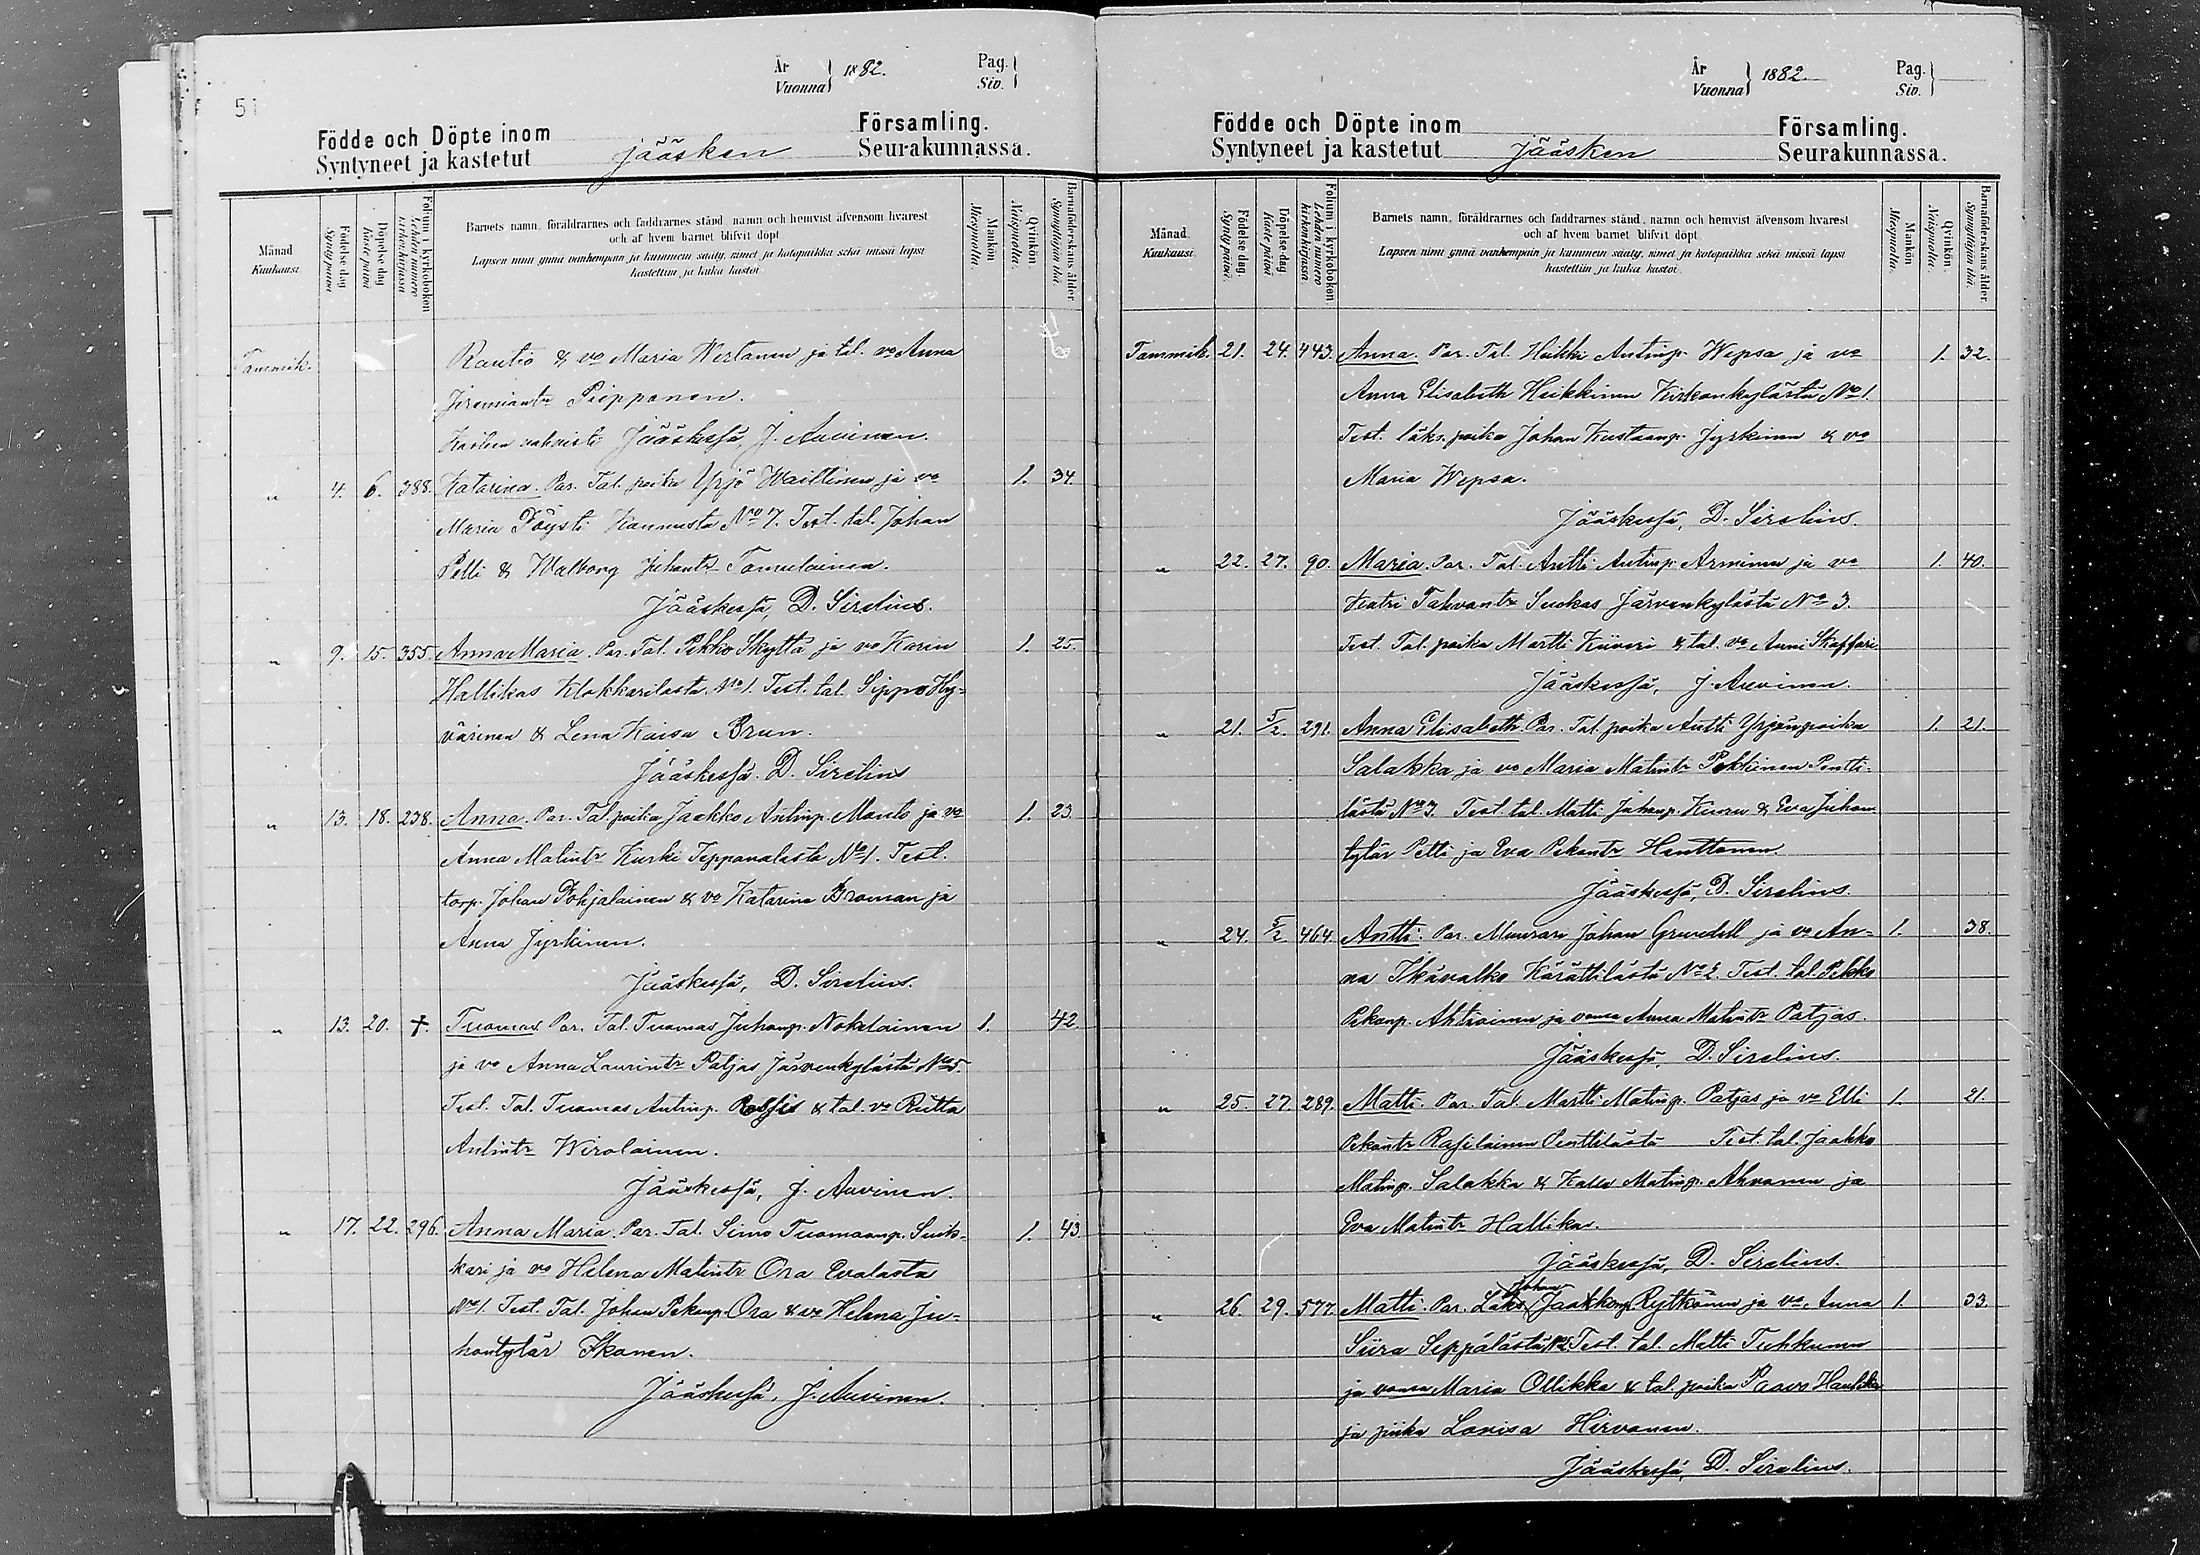 51
År
Vuonna 1882.
Pag.
Siv.
Födde och Döpte inom
Syntyneet ja kastetut Jääsken
Församling.
Seurakunnassa.
Månad
Kuukausi
Födelse-dag
Syntypäivä
Döpelse-dag
Kaste päivä
Folium i kyrkoboken
Lehden numero kirkonkirjassa
Barnets namn, föräldrarnes och faddrarnes stånd, namn och hemvist äfvensom hvarest
och af hvem barnet blifvit döpt
Lapsen nimi ynnä vanhempain ja kummein sääty, nimet ja kotopaikka sekä missä lapsi
kastettiin ja kuka kastoi.
Mankön
Miespuolia.
Qvinkön.
Naispuolia.
Barnaföderskans ålder
Synnyttäjän ikä.
Tammik. Rautio & vo Maria Wertanen ja tal. vo Anna
Jeremiantr Piipponen.
Kasteen vahvisti Jääskessä, J. Auvinen.
" 4. 6. 388. Katarina. Par. Tal. poika Yrjö Waittinen ja vo 1. 34.
Maria Pöysti Kannusta No 7. Test. tal. Johan
Pelli & Walborg Juhantr Tomulainen.
Jääskessä, D. Sirelius.
" 9. 15. 355. Anna Maria. Par. Tal. Pekko Skyttä ja vo Karin 1. 25.
Hallikas Klokkarilasta No 1. Test. tal. Sippo Hy-
värinen & Lena Kaisa Brun.
Jääskessä. D. Sirelius
" 13. 18. 238. Anna. Par. Tal. poika Jaakko Antinp. Manto ja vo 1. 23.
Anna Matintr Kurki Teppanalasta No 1. Test.
torp. Johan Pohjalainen & vo Katarina Broman ja
Anna Jyrkinen.
Jääskessä, D. Sirelius.
" 13. 20. †. Tuomas Par. Tal. Tuomas Juhanp. Nokelainen 1. 42.
ja vo Anna Laurintr Patjas Järvenkylästä No 5.
Test. Tal. Tuomas Antinp. Rossis & tal. vo Riitta
Antintr Wirolainen.
Jääskessä, J. Auvinen.
" 17. 22. 296. Anna Maria. Par. Tal. Simo Tuomaanp. Suik- 1. 43.
kari ja vo Helena Matintr Ora Evalasta
No 1. Test. Tal. Johan Pekanp. Ora & vo Helena Ju-
hontytär Ikonen.
Jääskessä, J. Auvinen.
År
Vuonna 1882.
Pag.
Siv.
Födde och Döpte inom
Syntyneet ja kastetut Jääsken
Församling.
Seurakunnassa.
Månad
Kuukausi
Födelse-dag
Syntypäivä.
Döpelse-dag
Kaste päivä
Folium i kyrkoboken
Lehden numero kirkonkirjassa
Barnets namn, föräldrarnes och faddrarnes stånd, namn och hemvist äfvensom hvarest
och af hvem barnet blifvit döpt.
Lapsen nimi ynnä vanhempain ja kummein sääty, nimet ja kotopaikka sekä missä lapsi
kastettiin ja kuka kastoi.
Mankön
Miespuolia.
Qvinkön.
Naispuolia.
Barnaföderskans ålder
Synnyttäjän ikä.
Tammik. 21. 24. 443. Anna. Par. Tal. Heikki Antinp. Wepsa ja vo 1. 32.
Anna Elisabeth Heikkinen Kirkonkylästä No 1.
Test. läks. poika Johan Kustaanp. Jyrkinen & vo
Maria Wepsa.
Jääskessä, D. Sirelius.
" 22. 27. 90. Maria. Par. Tal. Antti Antinp. Arminen ja vo 1. 40.
Keatri Tahvantr Suokas Järvenkylästä No 3.
Test. Tal. poika Martti Kiiveri & tal. vo Anni Skaffari
Jääskessä, J. Auvinen.
" 21. 5/2. 291. Anna Elisabeth. Par. Tal. poika Antti Yrjönpoika 1. 21.
Salakka ja vo Maria Matintr Pekkinen Pentti-
lästä No 3. Test. tal. Matti Juhanp. Kuoru & Eva Juhan
tytär Pelli ja Eva Pekantr Henttonen.
Jääskessä, D. Sirelius.
" 24. 5/2. 464. Antti. Par. Muurari Johan Grundell ja vo An- 1. 38.
na Ikävalko Kärättilästä No 2. Test. tal. Pekko
Pekanp. Ahtiainen ja vonsa Anna Matintr Patjas.
Jääskessä, D. Sirelius.
" 25. 27. 289. Matti. Par. Tal. Martti Matinp. Patjas ja vo Elli 1. 21.
Pekantr Rasilainen Penttilästä Test. tal. Jaakko
Matinp. Salakka & Kalle Matinp. Ahvonen ja
Eva Matintr Hallikas.
Jääskessä, D. Sirelius.
Johan
" 26. 29. 577. Matti. Par. Läks. Jaakkonp. Rytkönen ja vo Anna 1. 33.
Siira Seppälästä No 2 Test. tal. Matti Tuhkunen
ja vonsa Maria Ollikka & tal. poika Paavo Haukka
ja piika Lovisa Hirvonen.
Jääskessä, D. Sirelius.